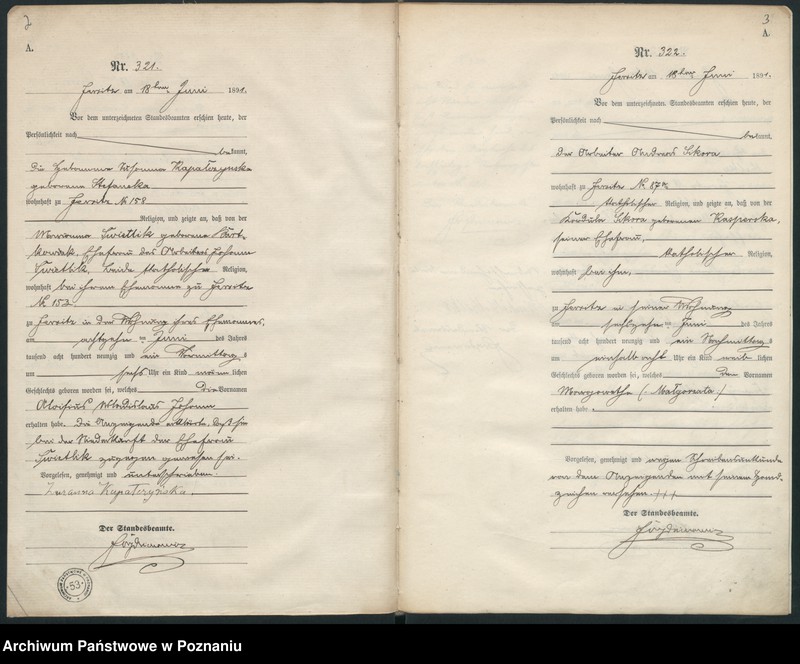 2
A.
Nr. 321.
Jersitz am 18ten Juni 1891.
Vor dem unterzeichneten Standesbeamten erschien heute, der
Persönlichkeit nach
bekannt,
die Hebamme Susanna Kapałczynska
geborene Stefanska
wohnhaft zu Jersitz N. 158
Religion, und zeigte an, daß von der
Marianna Swietlik geborene
Ehefrau des Arbeiters Johann
Swietlik, beide katholischer Religion,
wohnhaft bei ihrem Ehemanne zu Jersitz
N. 152.
zu Jersitz in der Wohnung ihres Ehemannes,
am achtzehn ten Juni des Jahres
tausend acht hundert neunzig und ein Vormittags
um sechs Uhr ein Kind männlichen
Geschlechts geboren worden sei, welches die Vornamen
Aloisius Wladislaus Johann
erhalten habe. Die Anzeigende erklärte, daß sie
bei der Niederkunft der Ehefrau
Swietlik zugegen gewesen sei.
Vorgelesen, genehmigt und unterschrieben.
Zuzanna Kapałczyńska.
Der Standesbeamte.
53
3
A.
Nr. 322.
Jersitz am 18ten Juni 1891.
Vor dem unterzeichneten Standesbeamten erschien heute, der
Persönlichkeit nach
bekannt,
der Arbeiter Andreas Sikora
wohnhaft zu Jersitz N. 87a
katholischer Religion, und zeigte an, daß von der
Sikora geborenen Kasperska,
seiner Ehefrau,
katholischer Religion,
wohnhaft bei ihm,
zu Jersitz in seiner Wohnung
am sechszehn ten Juni des Jahres
tausend acht hundert neunzig und ein Nachmittags
um einhalb acht Uhr ein Kind weiblichen
Geschlechts geboren worden sei, welches den Vornamen
Margarethe (Małgorzata)
erhalten habe.
Vorgelesen, genehmigt und wegen Schreibensunkunde
von dem Anzeigenden mit seinem Hand-
zeichen versehen. +++
Der Standesbeamte.
Archiwum Państwowe w Poznaniu